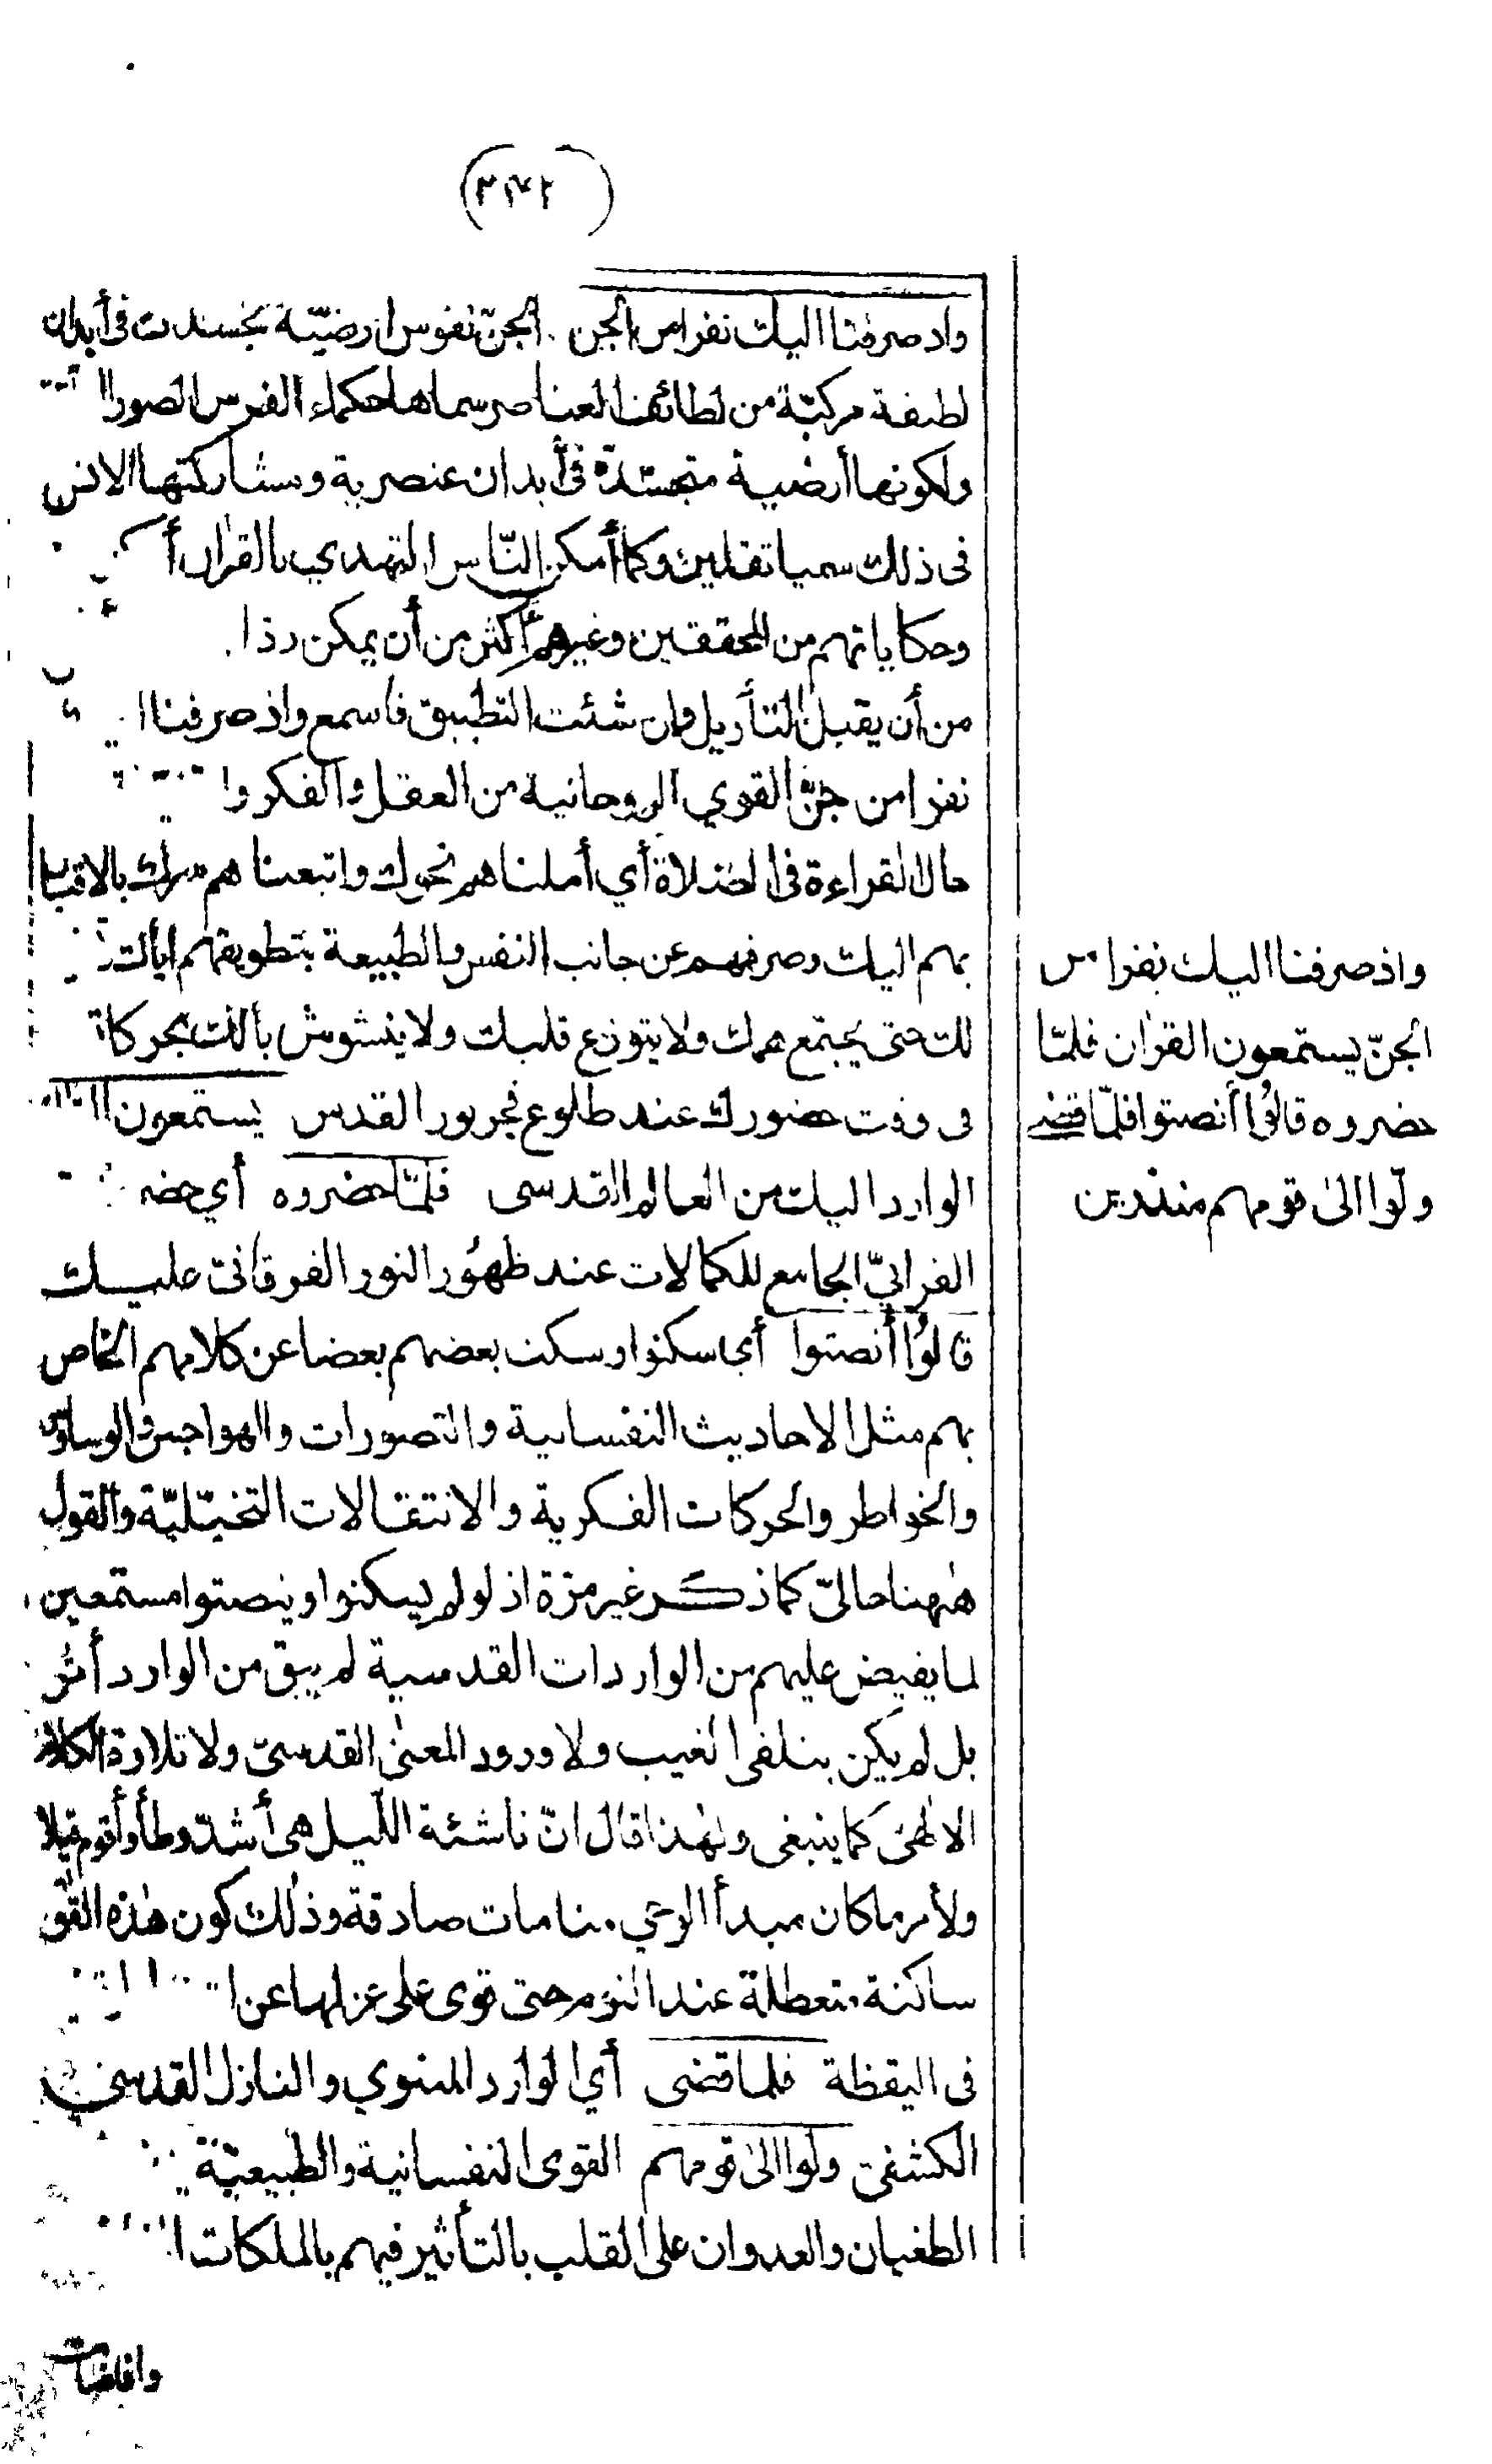 واذ صرفنا اليك نفرا من الجن الجنّ نفوس ارضيّة تجسدت فى أبدان
لطيفة مركبّة من لطائف العناصر سماها حكماء الفرس الصور
ولكونها أرضية متجسّدة فى أبدان عنصرية ومشاركتها الانس
فى ذلك سميا ثقلين وكما أمكن النّاس التهدي بالقرآن
وحكاياتهم من المحققين وغيرهم أكثر من أن يمكن رد
من أن يقبل التأويل وان شئت التطبيق فاسمع واذ صرفنا
نفرا من جنّ القوي الروحانية من العقل والفكر
حال القراءة فى الصلاة أي أملناهم نحوك واتبعناهم سرك بالاقبال
بهم اليك وصرفهم عن جانب النفس والطبيعة بتطويقهم اياك
لك حتى يجتمع همك ولا يتوزع قلبك ولا يتشوش بالك بحركاته
فى وقت حضورك عند طلوع فجر نور القدس يستمعون
الوارد اليك من العالم القدسى فلمّا حضروه أي
القرآنيّ الجامع للكمالات عند ظهور النور الفرقانى عليك
قالوا أنصتوا أي سكنوا وسكت بعضهم بعضا عن كلامهم الخاص
بهم مثل الاحاديث النفسانية والتصورات والهواجس والوساوس
والخواطر والحركات الفكرية والانتقالات التخيّليّة والقول
هٰهنا حاليّ كما ذكر غير مرّة اذ لو لم يسكنوا وينصتوا مستمعين
لما يفيض عليهم من الواردات القدسية لم يبق من الوارد أثر
بل لم يكن بتلقى الغيب ولا ورود المعنى القدسيّ ولا تلاوة الكلام
الالٰهىّ كما ينبغى ولهٰذا قال انّ ناشئة اللّيل هى أشدّ وطأ وأقوم قيلا
ولأمر ما كان مبدأ الوحي منامات صادقة وذلك كون هٰذه القوى
ساكنة متعطلة عند النوم حتى قوى على عزلها عن
فى اليقظة فلما قضى أي الوارد المعنوي والنازل القدسي
الكشفى ولّوا الى قومهم القوى النفسانية والطبيعيّة
الطغيان والعدوان على القلب بالتأثير فيهم بالملكات
وافاضات
واذ صرفنا اليك نفرا من
الجنّ يستمعون القرآن فلمّا
حضروه قالوا أنصتوا فلمّا قضى
ولّوا الى قومهم منذرين